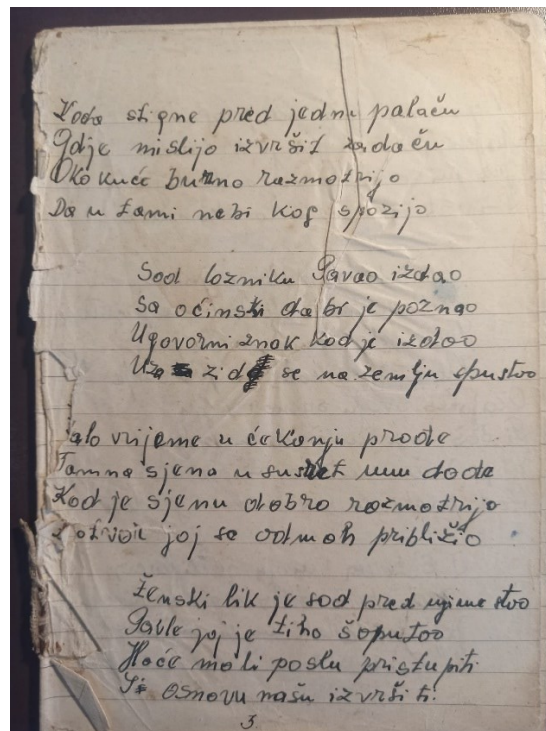 Koda stigne pred jednu palaču
Gdje mislijo izvršit zadaču
Oko kuće burno razmotrijo
Da u tami nebi kog spozijo
Sod lozniku Pavao izdao
Sa oćinski da bi je poznao
Ugovorni znak kod je izdao
Uza zid se na zemlju spustvo
alo vrijeme u čekanju prođe
Tamna sjena u susret mu dođe
Kod je sjenu dobro razmotrijo
joj se odmah približio
Ženski lik je sod pred njime stvo
Pavle joj je tiho šoputoo
Hoće mo li poslu pristupiti
I osnovu našu izvršiti.
3.